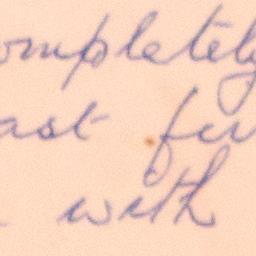 ompletely
ast fu
with